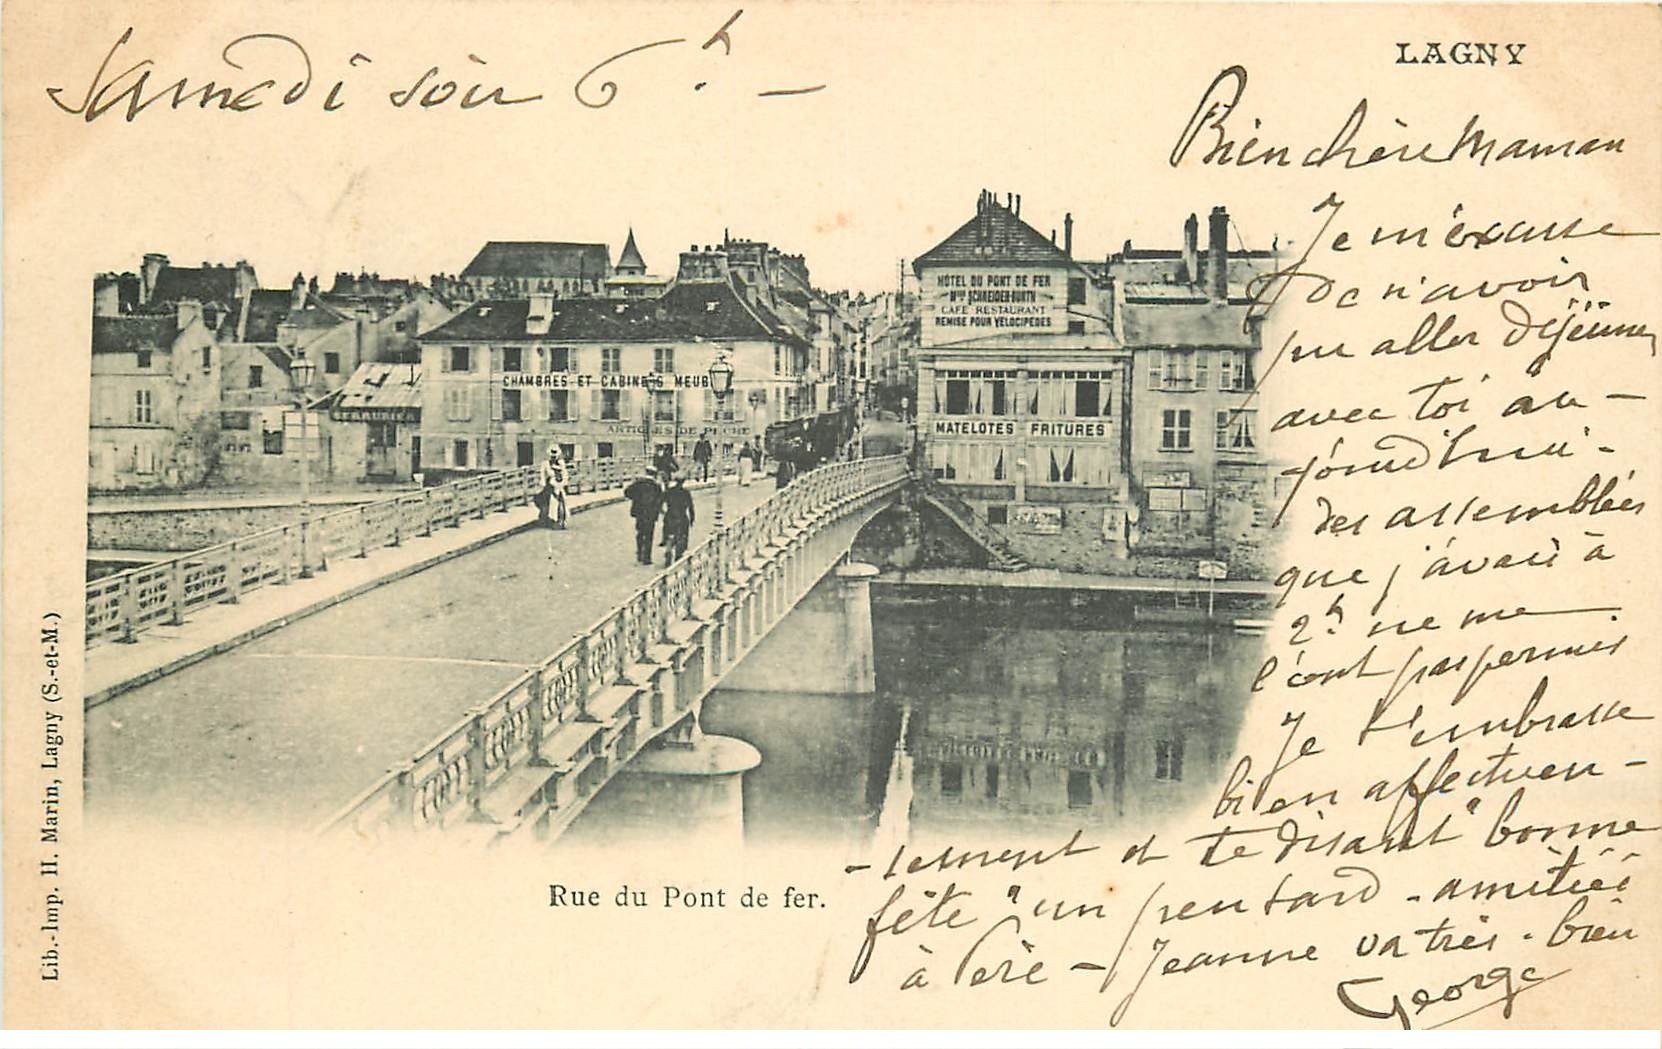 Samedi soir 6h. —
LAGNY
Bien chère Maman
Je m'excuse
de n'avoir
pu aller déjeuner
avec toi au-
jourd'hui.
des assemblées
que j'avais à
2h ne me
l'ont pas permis
Je t'embrasse
bien affectueu-
-sement et te disant "bonne
fête" un peu tard - amitiés
à Père - Jeanne va très bien
George
HÔTEL DU PONT DE FER
SCHREIDER-BURTH
CAFÉ RESTAURANT
REMISE POUR VÉLOCIPÈDES
CHAMBRES ET CABINETS MEUB
SERRURIER
ARTICLES DE PÊCHE
MATELOTES FRITURES
Rue du Pont de fer.
Lib.-Imp. H. Marin, Lagny (S.-et-M.)